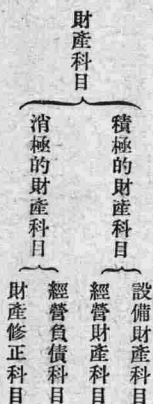 財產科目
積極的財產科目
設備財產科目
經營財產科目
消極的財產科目
經營負債科目
財產修正科目